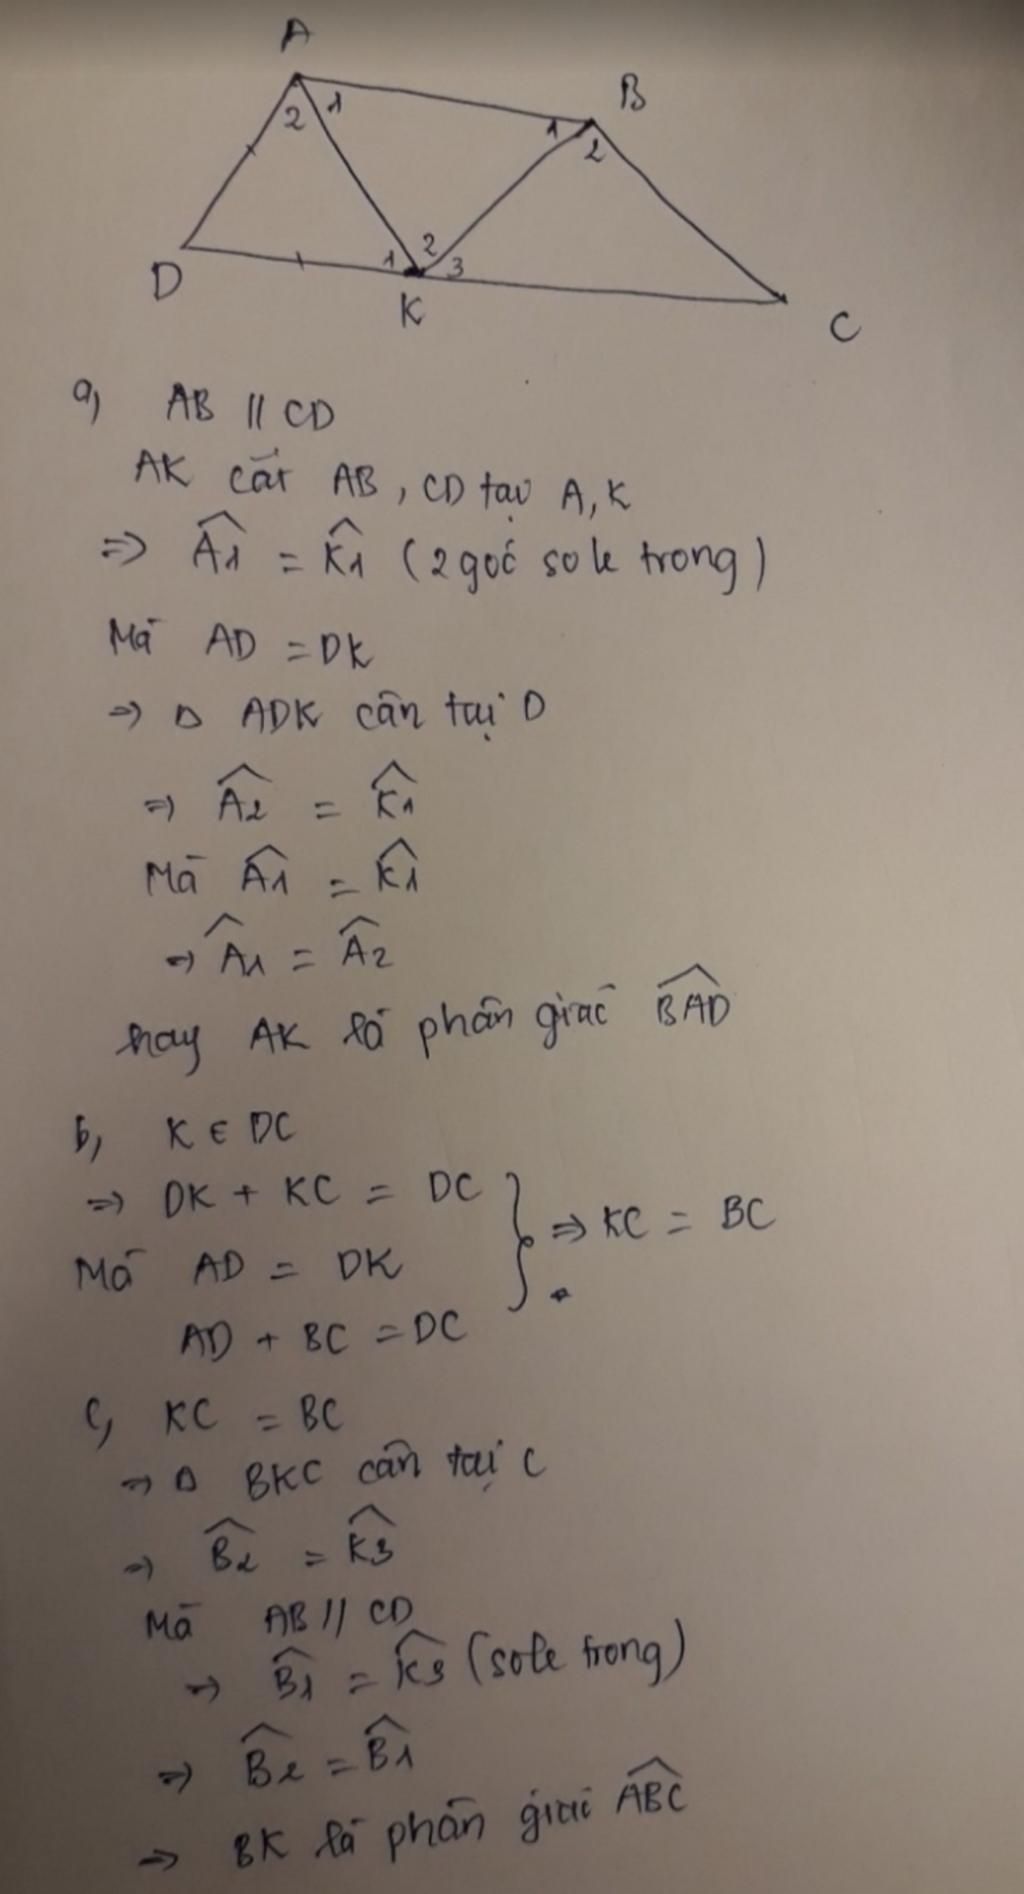 A
B
1
2
1
2
2
1
3
D
K
C
a, AB // CD
AK cắt AB, CD tại A, K
=> Â1 = K̂1 (2 góc sole trong)
Mà AD = DK
=> Δ ADK cân tại D
=> Â2 = K̂1
Mà Â1 = K̂1
=> Â1 = Â2
hay AK là phân giác \widehat{BAD}
b, K ∈ DC
=> DK + KC = DC
Mà AD = DK
AD + BC = DC
} => KC = BC
c, KC = BC
=> Δ BKC cân tại C
=> B̂2 = K̂3
Mà AB // CD
=> B̂1 = K̂3 (sole trong)
=> B̂2 = B̂1
=> BK là phân giác \widehat{ABC}